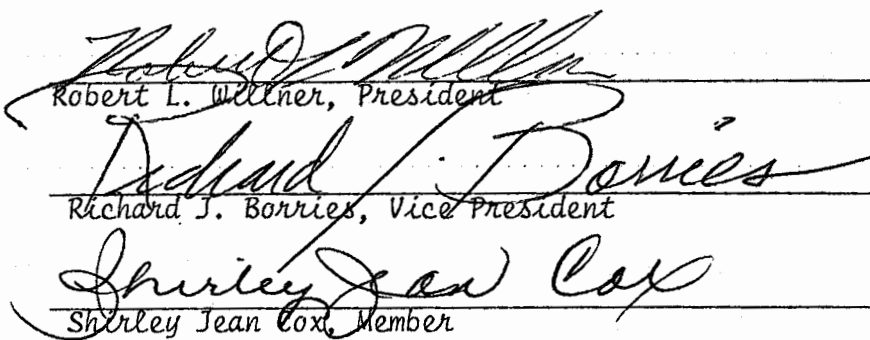 Robert L. Willner
Robert L. Willner, President
Richard J. Borries
Richard J. Borries, Vice President
Shirley Jean Cox
Shirley Jean Cox, Member